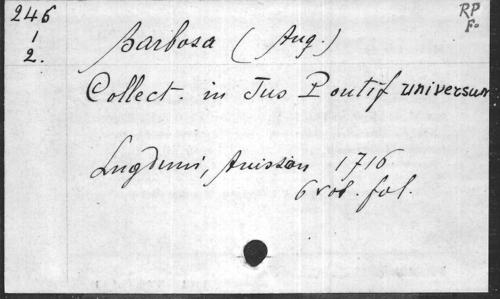 246
1
2.
RP
Fo.
Barbosa (Aug.)
Collect. in Jus Pontif universum
Lugduni, Anisson 1716
6 vol. fol.